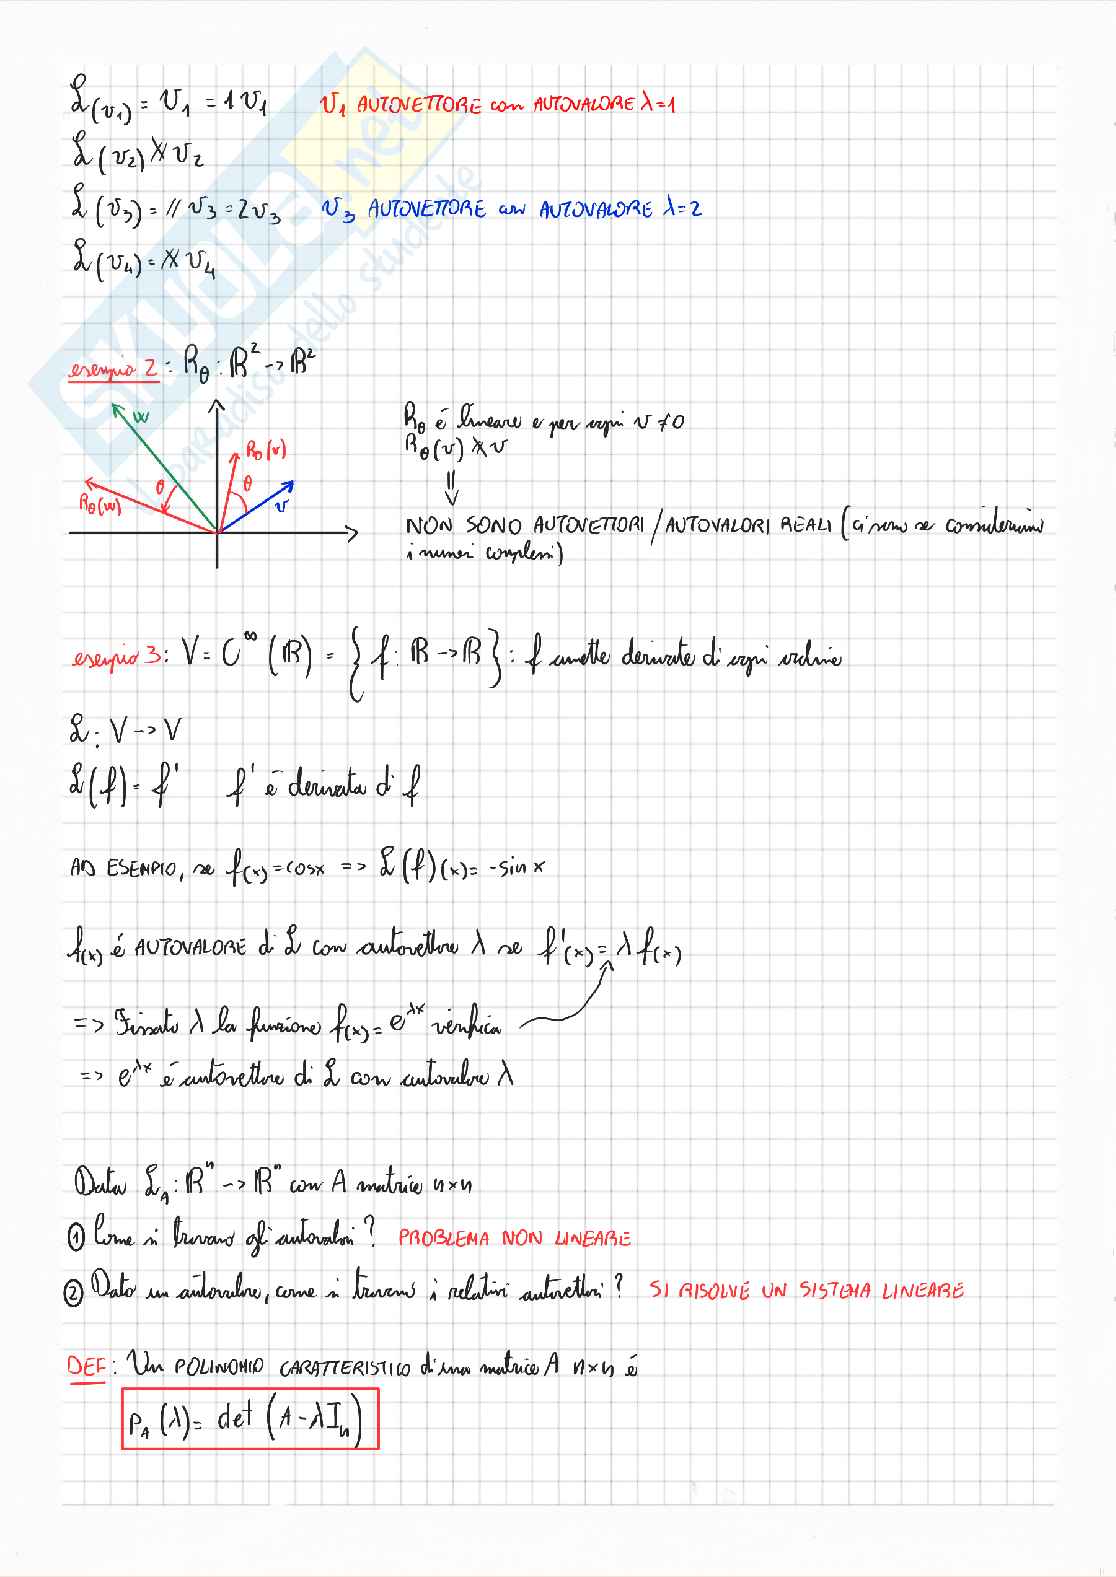 L(v₁) = v₁ = 1v₁ v₁ AUTOVETTORE con AUTOVALORE λ=1
L(v₂) ∦ v₂
L(v₃) = // v₃ = 2v₃ v₃ AUTOVETTORE con AUTOVALORE λ=2
L(v₄) = ∦ v₄
esempio 2: R_θ : ℝ² -> ℝ²
w
R_θ(v)
θ
θ
R_θ(w)
v
R_θ é lineare e per ogni v ≠ 0
R_θ(v) ∦ v
⇓
NON SONO AUTOVETTORI / AUTOVALORI REALI (ci sono se consideriamo
i numeri complessi)
esempio 3: V = C^∞(ℝ) = { f: ℝ -> ℝ } : f amette derivate di ogni ordine
L: V -> V
L(f) = f' f' é derivata di f
AD ESEMPIO, se f(x) = cosx => L(f)(x) = -sin x
f(x) é AUTOVALORE di L con autovettore λ se f'(x) = λ f(x)
=> Fissato λ la funzione f(x) = e^{λx} verifica
=> e^{λx} é autovettore di L con autovalore λ
Data L_A : ℝⁿ -> ℝⁿ con A matrice n×n
① Come si trovano gli autovalori? PROBLEMA NON LINEARE
② Dato un autovalore, come si trovano i relativi autovettori? SI RISOLVE UN SISTEMA LINEARE
DEF: Un POLINOMIO CARATTERISTICO di una matrice A n×n é
P_A(λ) = det (A - λI_n)
SKUOLA.net
il paradiso dello studente